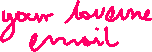 your loverne
email